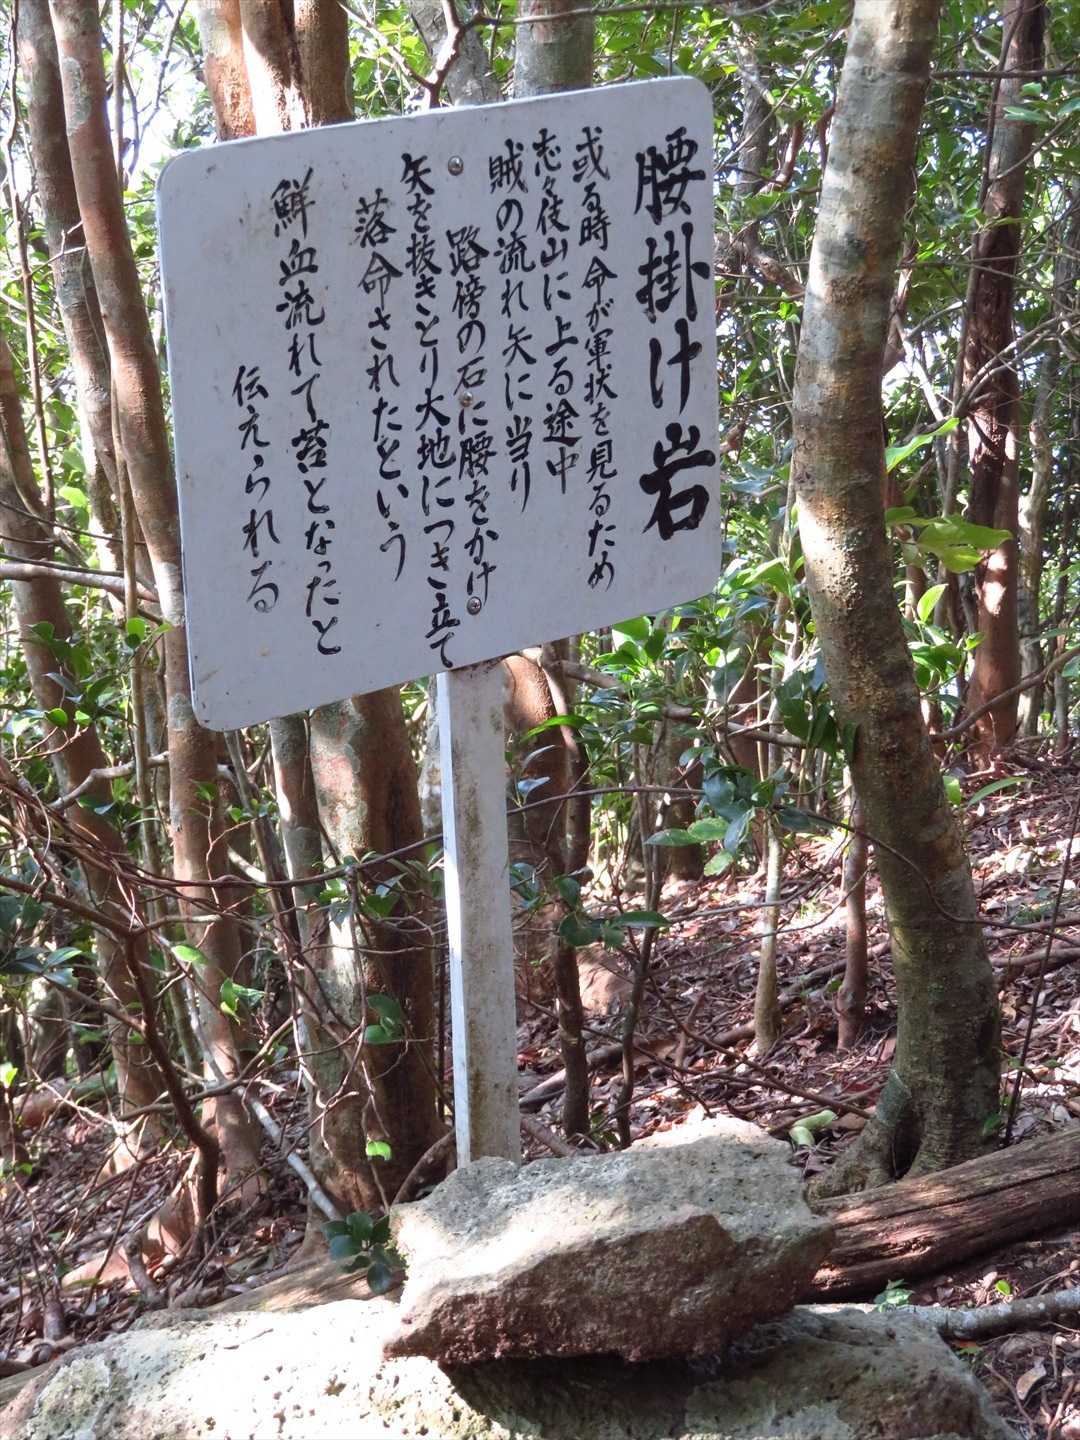 腰掛け岩
或る時 命が軍状を見るため
志々伎山に上る途中
賊の流れ矢に当り
路傍の石に腰をかけ
矢を抜きとり大地につき立て
落命されたという
鮮血流れて苔となったと
伝えられる